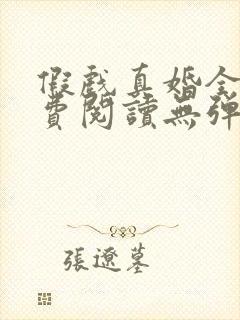 假戲真婚全
費閱讀無彈
張遼墓